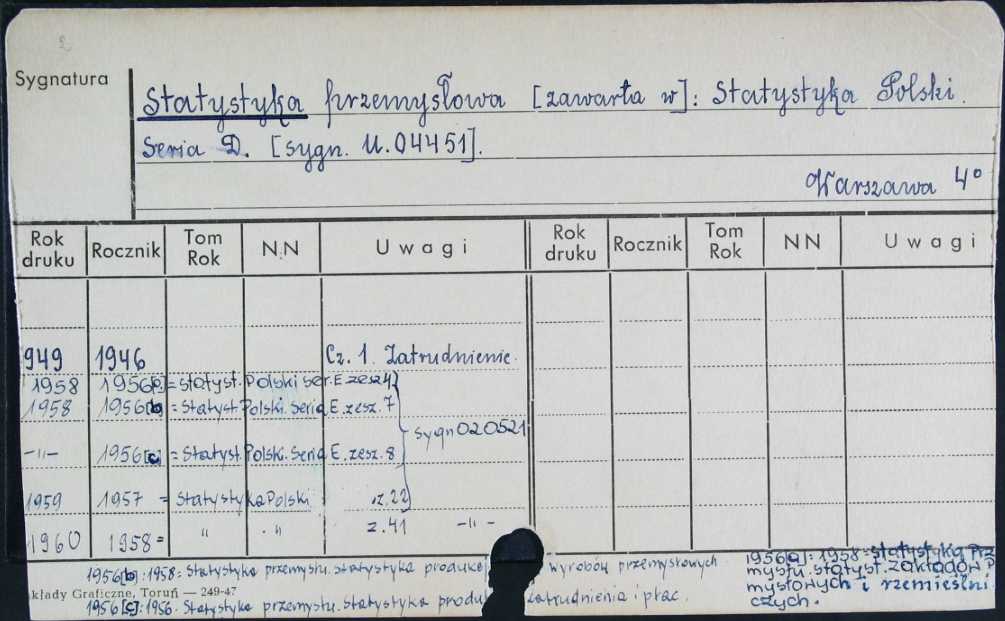 2
Sygnatura
Statystyka przemysłowa [zawarta w]: Statystyka Polski.
Seria D. [sygn. U.04451].
Warszawa 4°
Rok druku Rocznik Tom Rok N.N Uwagi Rok druku Rocznik Tom Rok NN Uwagi
949 1946 Cz. 1. Zatrudnienie.
1958 1956[a] = Statyst. Polski Ser. E zesz 4
1958 1956[b] = Statyst. Polski. Seria E. zesz. 7
sygn 020521
-"- 1956[c] = Statyst. Polski. Seria E. zesz. 8
1959 1957 = Statystyka Polski z. 22
1960 1958 = " " z. 41 -"-
1956[b]: 1958 = Statystyka przemysłu. statystyka produkcji wyrobów przemysłowych.
kłady Graficzne, Toruń — 249-47
1956[c]: 1956. Statystyka przemysłu. statystyka zatrudnienia i płac.
1956[a]: 1958 = Statystyka prze
mysłu. statyst. zakładów p
mysłowych i rzemieślni
czych.